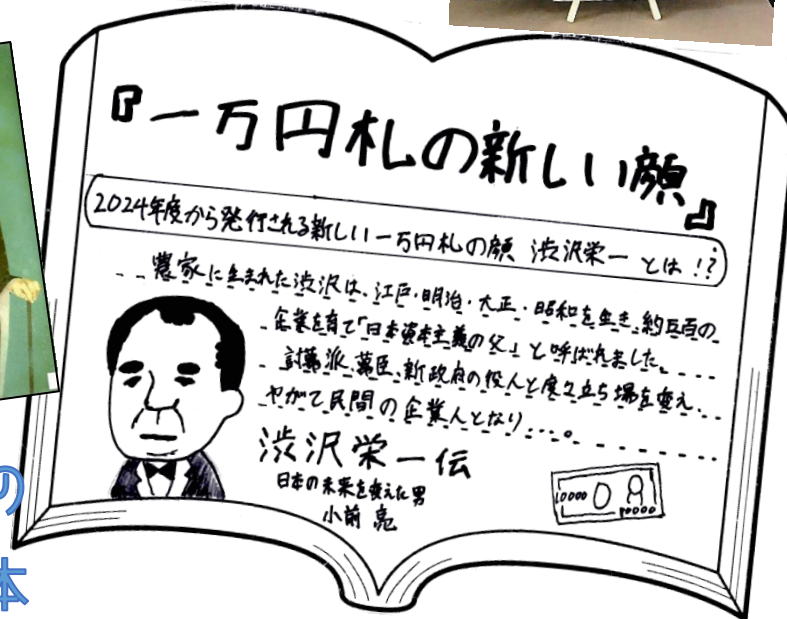 『一万円札の新しい顔』
2024年度から発行される新しい一万円札の顔 渋沢栄一とは!?
農家に生まれた渋沢は、江戸・明治・大正・昭和を生き、約五百の
企業を育て「日本資本主義の父」と呼ばれました。
討幕派、幕臣、新政府の役人と度々立ち場を変え、
やがて民間の企業人となり…。
渋沢栄一伝
日本の未来を変えた男
小前亮
10000
10000
の
本